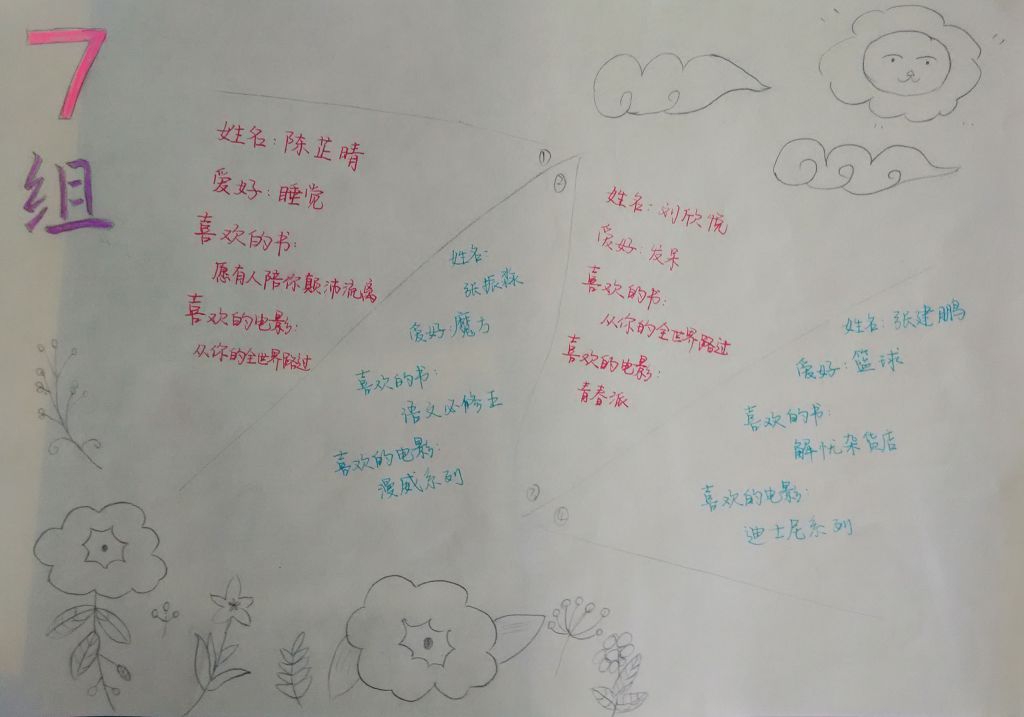 7
组
姓名：陈芷晴
爱好：睡觉
喜欢的书：
愿有人陪你颠沛流离
喜欢的电影：
从你的全世界路过
①
②
姓名：
张振淼
爱好：魔方
喜欢的书：
语文必修五
喜欢的电影：
漫威系列
姓名：刘欣悦
爱好：发呆
喜欢的书：
从你的全世界路过
喜欢的电影：
青春派
③
④
姓名：张建鹏
爱好：篮球
喜欢的书：
解忧杂货店
喜欢的电影：
迪士尼系列